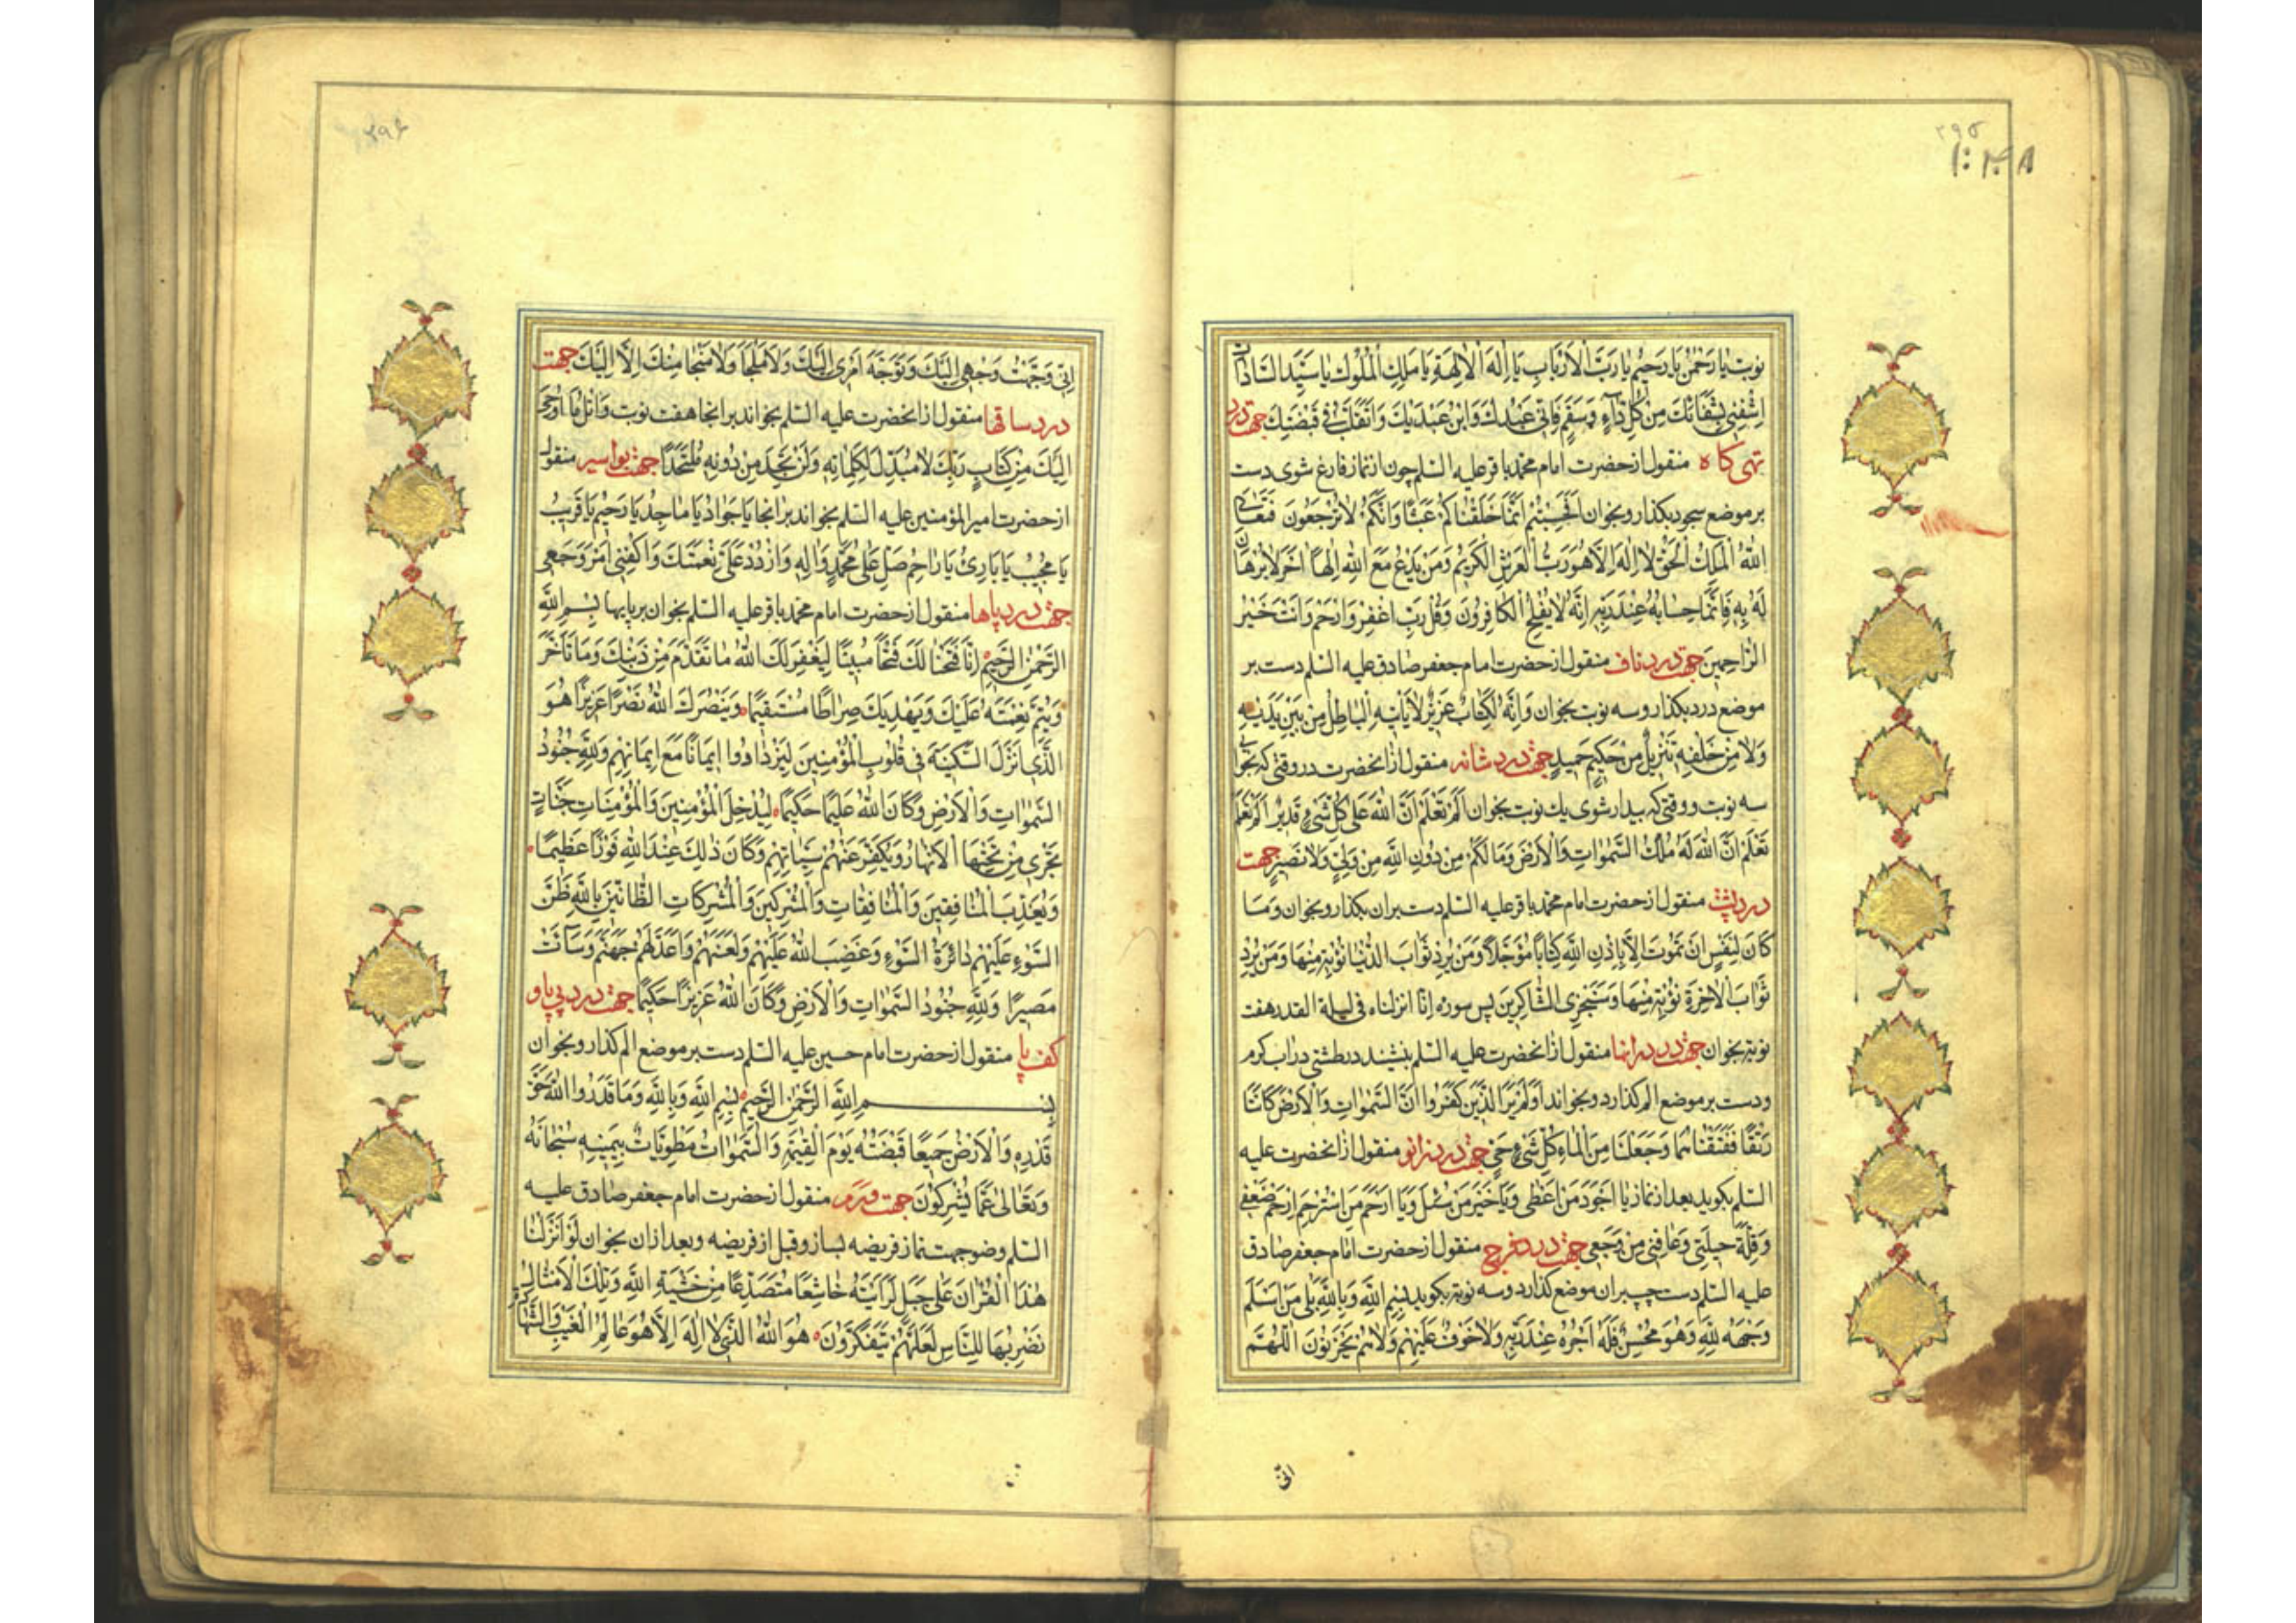 ۲۹۵
نوبت یا رَحْمٰنُ یا رَحیمُ یا رَبَّ الْاَرْبابِ یا اِلٰهَ الْاٰلِهَةِ یا مَلِكَ الْمُلُوكِ یا سَیِّدَ السّاداتِ
اِشْفِنی بِشِفائِكَ مِنْ كُلِّ داۤءٍ وَسَقَمٍ فَاِنّی عَبْدُكَ وَابْنُ عَبْدَیْكَ وَاَتَقَلَّبُ فی قَبْضَتِكَ جهت درد
تهی کاه منقول از حضرت امام محمد باقر علیه السلم چون از نماز فارغ شوی دست
بر موضع سجود بکذار و بخوان اَفَحَسِبْتُمْ اَنَّما خَلَقْناكُمْ عَبَثًا وَاَنَّكُمْ لا تُرْجَعُونَ فَتَعالَی
اللّٰهُ الْمَلِكُ الْحَقُّ لا اِلٰهَ اِلّا هُوَ رَبُّ الْعَرْشِ الْكَریمِ وَمَنْ یَدْعُ مَعَ اللّٰهِ اِلٰهًا اٰخَرَ لا بُرْهانَ
لَهُ بِهِ فَاِنَّما حِسابُهُ عِنْدَ رَبِّهِ اِنَّهُ لا یُفْلِحُ الْكافِرُونَ وَقُلْ رَبِّ اغْفِرْ وَارْحَمْ وَاَنْتَ خَیْرُ
الرّاحِمینَ جهت درد ناف منقول از حضرت امام جعفر صادق علیه السلم دست بر
موضع درد بکذار و سه نوبت بخوان وَاِنَّهُ لَكِتابٌ عَزیزٌ لا یَأْتیهِ الْباطِلُ مِنْ بَیْنِ یَدَیْهِ
وَلا مِنْ خَلْفِهِ تَنْزیلٌ مِنْ حَكیمٍ حَمیدٍ جهت درد شانه منقول از انحضرت در وقتی که
سه نوبت و وقتی که بیدار شوی یك نوبت بخوان اَلَمْ تَعْلَمْ اَنَّ اللّٰهَ عَلٰی كُلِّ شَیْءٍ قَدیرٌ اَلَمْ تَعْلَمْ
تَعْلَمْ اَنَّ اللّٰهَ لَهُ مُلْكُ السَّمٰواتِ وَالْاَرْضِ وَما لَكُمْ مِنْ دُونِ اللّٰهِ مِنْ وَلِیٍّ وَلا نَصیرٍ جهت
درد پشت منقول از حضرت امام محمد باقر علیه السلم دست بران بکذار و بخوان وَما
كانَ لِنَفْسٍ اَنْ تَمُوتَ اِلّا بِاِذْنِ اللّٰهِ كِتابًا مُؤَجَّلًا وَمَنْ یُرِدْ ثَوابَ الدُّنْیا نُؤْتِهِ مِنْها وَمَنْ یُرِدْ
ثَوابَ الْاٰخِرَةِ نُؤْتِهِ مِنْها وَسَنَجْزِی الشّاكِرینَ پس سوره انا انزلناه فی لیلة القدر هفت
نوبت بخوان جهت درد رانها منقول از انحضرت علیه السلم بنشیند در طشتی در آب کرم
و دست بر موضع الم کذارد و بخواند اَوَلَمْ یَرَ الَّذینَ كَفَرُوا اَنَّ السَّمٰواتِ وَالْاَرْضَ كانَتا
رَتْقًا فَفَتَقْناهُما وَجَعَلْنا مِنَ الْماءِ كُلَّ شَیْءٍ حَیٍّ جهت درد زانو منقول از انحضرت علیه
السلم بکوید بعد از نماز یا اَجْوَدَ مَنْ اَعْطٰی وَیا خَیْرَ مَنْ سُئِلَ وَیا اَرْحَمَ مَنِ اسْتُرْحِمَ اِرْحَمْ ضَعْفی
وَقِلَّةَ حیلَتی وَعافِنی مِنْ وَجَعی جهت درد فرج منقول از حضرت امام جعفر صادق
علیه السلم دست چپ بران موضع کذارد و سه نوبت بکوید بِسْمِ اللّٰهِ وَبِاللّٰهِ بَلٰی مَنْ اَسْلَمَ
وَجْهَهُ لِلّٰهِ وَهُوَ مُحْسِنٌ فَلَهُ اَجْرُهُ عِنْدَ رَبِّهِ وَلا خَوْفٌ عَلَیْهِمْ وَلا هُمْ یَحْزَنُونَ اَللّٰهُمَّ
انّی
۲۹۶
اِنّی وَجَّهْتُ وَجْهی اِلَیْكَ وَتَوَجَّهَ اَمْری اِلَیْكَ وَلا مَلْجَأَ وَلا مَنْجا مِنْكَ اِلّا اِلَیْكَ جهت
درد ساقها منقول از انحضرت علیه السلم بخواند بر انجا هفت نوبت وَاتْلُ ما اُوحِیَ
اِلَیْكَ مِنْ كِتابِ رَبِّكَ لا مُبَدِّلَ لِكَلِماتِهِ وَلَنْ تَجِدَ مِنْ دُونِهِ مُلْتَحَدًا جهت بواسیر منقول
از حضرت امیر المؤمنین علیه السلم بخواند بر انجا یا جَوادُ یا ماجِدُ یا رَحیمُ یا قَریبُ
یا مُجیبُ یا بارِئُ یا راحِمُ صَلِّ عَلٰی مُحَمَّدٍ وَاٰلِهِ وَارْدُدْ عَلَیَّ نِعْمَتَكَ وَاكْفِنی اَمْرَ وَجَعی
جهت درد پاها منقول از حضرت امام محمد باقر علیه السلم بخوان بر پایها بِسْمِ اللّٰهِ
الرَّحْمٰنِ الرَّحیمِ اِنّا فَتَحْنا لَكَ فَتْحًا مُبینًا لِیَغْفِرَ لَكَ اللّٰهُ ما تَقَدَّمَ مِنْ ذَنْبِكَ وَما تَاَخَّرَ
وَیُتِمَّ نِعْمَتَهُ عَلَیْكَ وَیَهْدِیَكَ صِراطًا مُسْتَقیمًا وَیَنْصُرَكَ اللّٰهُ نَصْرًا عَزیزًا هُوَ
الَّذی اَنْزَلَ السَّكینَةَ فی قُلُوبِ الْمُؤْمِنینَ لِیَزْدادُوا ایمانًا مَعَ ایمانِهِمْ وَلِلّٰهِ جُنُودُ
السَّمٰواتِ وَالْاَرْضِ وَكانَ اللّٰهُ عَلیمًا حَكیمًا لِیُدْخِلَ الْمُؤْمِنینَ وَالْمُؤْمِناتِ جَنّاتٍ
تَجْری مِنْ تَحْتِهَا الْاَنْهارُ وَیُكَفِّرَ عَنْهُمْ سَیِّئاتِهِمْ وَكانَ ذٰلِكَ عِنْدَ اللّٰهِ فَوْزًا عَظیمًا
وَیُعَذِّبَ الْمُنافِقینَ وَالْمُنافِقاتِ وَالْمُشْرِكینَ وَالْمُشْرِكاتِ الظّانّینَ بِاللّٰهِ ظَنَّ
السَّوْءِ عَلَیْهِمْ دائِرَةُ السَّوْءِ وَغَضِبَ اللّٰهُ عَلَیْهِمْ وَلَعَنَهُمْ وَاَعَدَّ لَهُمْ جَهَنَّمَ وَساۤءَتْ
مَصیرًا وَلِلّٰهِ جُنُودُ السَّمٰواتِ وَالْاَرْضِ وَكانَ اللّٰهُ عَزیزًا حَكیمًا جهت درد پی پا و
کف پا منقول از حضرت امام حسین علیه السلم دست بر موضع الم کذار و بخوان
بِسْمِ اللّٰهِ الرَّحْمٰنِ الرَّحیمِ بِسْمِ اللّٰهِ وَبِاللّٰهِ وَما قَدَرُوا اللّٰهَ حَقَّ
قَدْرِهِ وَالْاَرْضُ جَمیعًا قَبْضَتُهُ یَوْمَ الْقِیٰمَةِ وَالسَّمٰواتُ مَطْوِیّاتٌ بِیَمینِهِ سُبْحانَهُ
وَتَعالٰی عَمّا یُشْرِكُونَ جهت ورم منقول از حضرت امام جعفر صادق علیه
السلم وضو جهت نماز فریضه بساز و قبل از فریضه و بعد ازان بخوان لَوْ اَنْزَلْنا
هٰذَا الْقُرْاٰنَ عَلٰی جَبَلٍ لَرَاَیْتَهُ خاشِعًا مُتَصَدِّعًا مِنْ خَشْیَةِ اللّٰهِ وَتِلْكَ الْاَمْثالُ
نَضْرِبُها لِلنّاسِ لَعَلَّهُمْ یَتَفَكَّرُونَ هُوَ اللّٰهُ الَّذی لا اِلٰهَ اِلّا هُوَ عالِمُ الْغَیْبِ وَالشَّهادَةِ